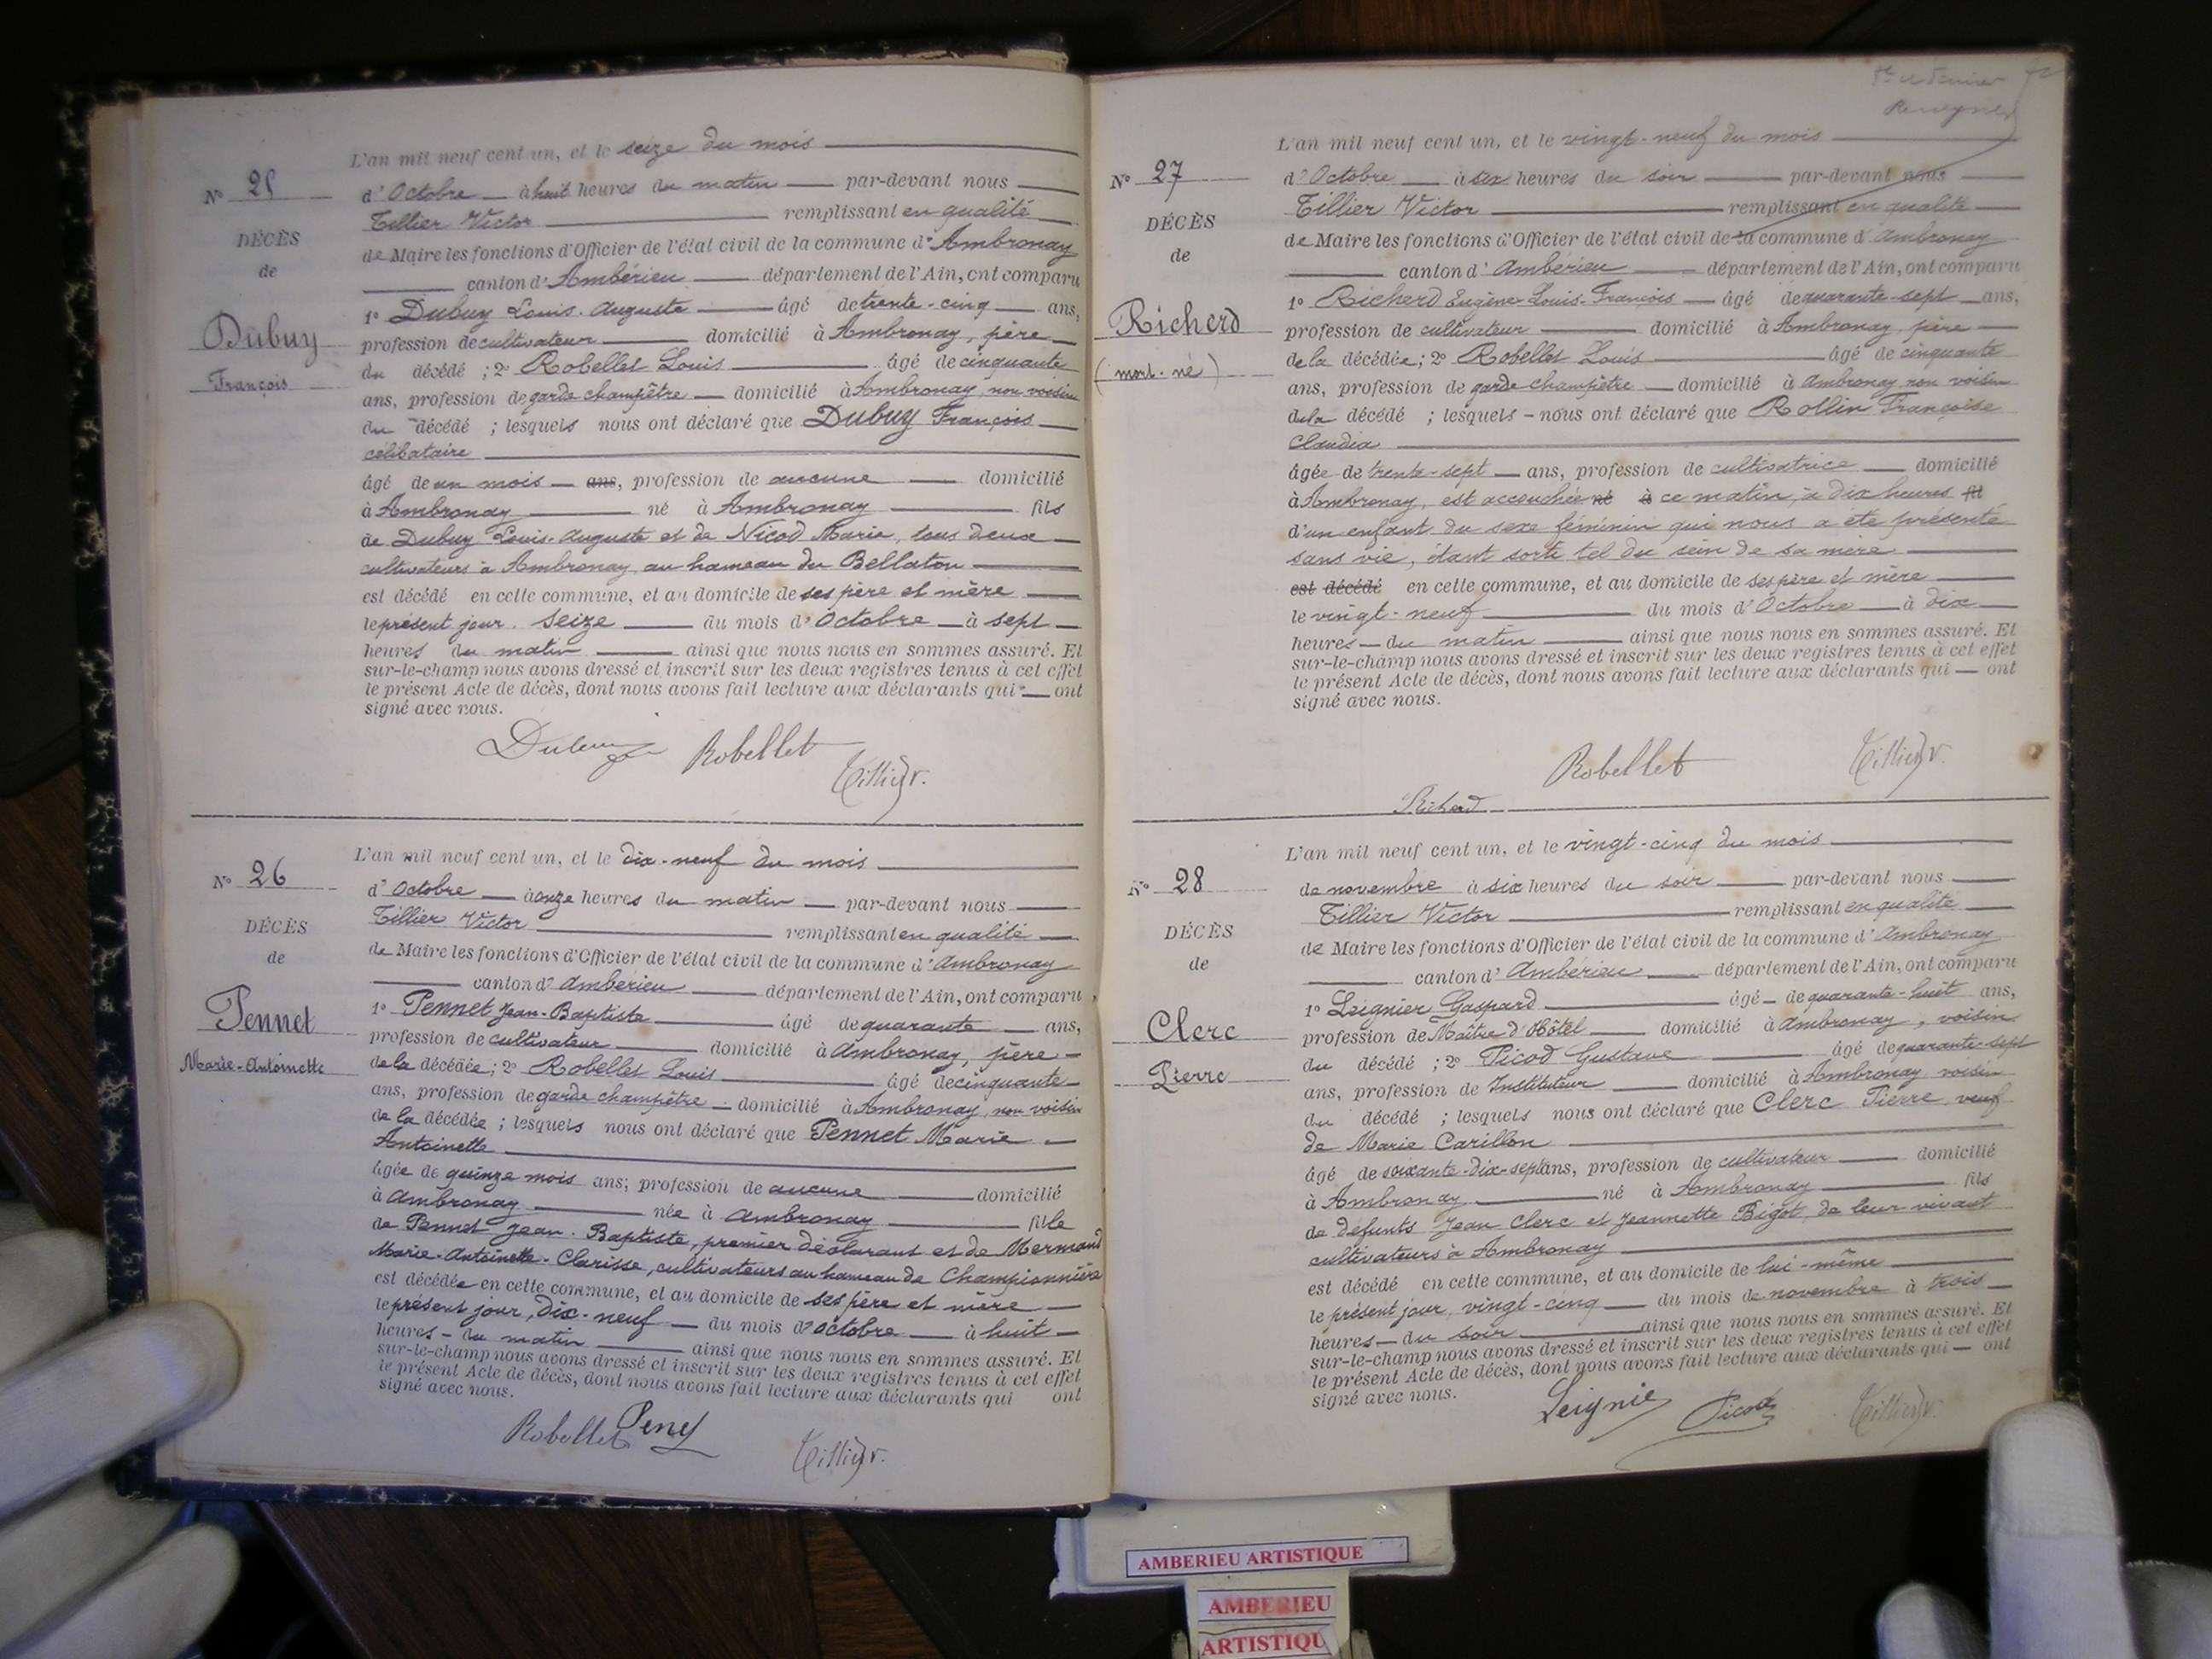 L'an mil neuf cent un, et le seize du mois
N° 25
d'Octobre à huit heures du matin par-devant nous
Tillier Victor remplissant en qualité
DÉCÈS
de Maire les fonctions d'Officier de l'état civil de la commune d'Ambronay
de
canton d'Ambérieu département de l'Ain, ont comparu
1° Dubuy Louis-Auguste âgé de trente-cinq ans,
Dubuy
profession de cultivateur domicilié à Ambronay, père
François
du décédé ; 2° Robellet Louis âgé de cinquante
ans, profession de garde champêtre domicilié à Ambronay, non voisin
du décédé ; lesquels nous ont déclaré que Dubuy François
célibataire
âgé de un mois ans, profession de aucune domicilié
à Ambronay né à Ambronay fils
de Dubuy Louis-Auguste et de Nicod Marie, tous deux
cultivateurs à Ambronay au hameau du Bellaton
est décédé en cette commune, et au domicile de ses père et mère
le présent jour seize du mois d'Octobre à sept
heures du matin ainsi que nous nous en sommes assuré. Et
sur-le-champ nous avons dressé et inscrit sur les deux registres tenus à cet effet
le présent Acte de décès, dont nous avons fait lecture aux déclarants qui ont
signé avec nous.
Dubuy Robellet
Tillier V.
L'an mil neuf cent un, et le dix-neuf du mois
N° 26
d'Octobre à onze heures du matin par-devant nous
Tillier Victor remplissant en qualité
DÉCÈS
de Maire les fonctions d'Officier de l'état civil de la commune d'Ambronay
de
canton d'Ambérieu département de l'Ain, ont comparu
Pennet
1° Pennet Jean-Baptiste âgé de quarante ans,
profession de cultivateur domicilié à Ambronay, père
Marie-Antoinette
de la décédée ; 2° Robellet Louis âgé de cinquante
ans, profession de garde champêtre domicilié à Ambronay, non voisin
de la décédée ; lesquels nous ont déclaré que Pennet Marie
Antoinette
âgée de quinze mois ans; profession de aucune domicilié
à Ambronay née à Ambronay fille
de Pennet Jean-Baptiste, premier déclarant et de Mermand
Marie-Antoinette-Clarisse, cultivateurs au hameau de Championnière
est décédée en cette commune, et au domicile de ses père et mère
le présent jour, dix-neuf du mois d'octobre à huit
heures du matin ainsi que nous nous en sommes assuré. Et
sur-le-champ nous avons dressé et inscrit sur les deux registres tenus à cet effet
le présent Acte de décès, dont nous avons fait lecture aux déclarants qui ont
signé avec nous.
Robellet Penet
Tillier V.
L'an mil neuf cent un, et le vingt-neuf du mois
N° 27
d'Octobre à six heures du soir par-devant nous
Tillier Victor remplissant en qualité
DÉCÈS
de Maire les fonctions d'Officier de l'état civil de la commune d'Ambronay
de
canton d'Ambérieu département de l'Ain, ont comparu
Richerd
1° Richerd Eugène Louis-François âgé de quarante-sept ans,
profession de cultivateur domicilié à Ambronay père
(mort-né)
de la décédée ; 2° Robellet Louis âgé de cinquante
ans, profession de garde champêtre domicilié à Ambronay non voisin
de la décédé ; lesquels nous ont déclaré que Rollin Françoise
Claudia
âgée de trente-sept ans, profession de cultivatrice domicilié
à Ambronay, est accouchée né à ce matin, à dix heures fil
d'un enfant du sexe féminin qui nous a été présenté
sans vie, étant sorti tel du sein de sa mère
est décédé en cette commune, et au domicile de ses père et mère
le vingt-neuf du mois d'Octobre à dix
heures du matin ainsi que nous nous en sommes assuré. Et
sur-le-champ nous avons dressé et inscrit sur les deux registres tenus à cet effet
le présent Acte de décès, dont nous avons fait lecture aux déclarants qui ont
signé avec nous.
Robellet Tillier V.
Richerd
L'an mil neuf cent un, et le vingt-cinq du mois
N° 28
de novembre à six heures du soir par-devant nous
Tillier Victor remplissant en qualité
DÉCÈS
de Maire les fonctions d'Officier de l'état civil de la commune d'Ambronay
de
canton d'Ambérieu département de l'Ain, ont comparu
1° Leignier Gaspard âgé de quarante-huit ans,
Clerc
profession de Maître d'Hôtel domicilié à Ambronay, voisin
du décédé ; 2° Picod Gustave âgé de quarante-sept
Pierre
ans, profession de Instituteur domicilié à Ambronay voisin
du décédé ; lesquels nous ont déclaré que Clerc Pierre veuf
de Marie Carillon
âgé de soixante-dix-sept ans, profession de cultivateur domicilié
à Ambronay né à Ambronay fils
de défunts Jean Clerc et Jeannette Bigot, de leur vivant
cultivateurs à Ambronay
est décédé en cette commune, et au domicile de lui-même
le présent jour, vingt-cinq du mois de novembre à trois
heures du soir ainsi que nous nous en sommes assuré. Et
sur-le-champ nous avons dressé et inscrit sur les deux registres tenus à cet effet
le présent Acte de décès, dont nous avons fait lecture aux déclarants qui ont
signé avec nous.
Leignier Picod Tillier V.
AMBERIEU ARTISTIQUE
AMBERIEU
ARTISTIQU